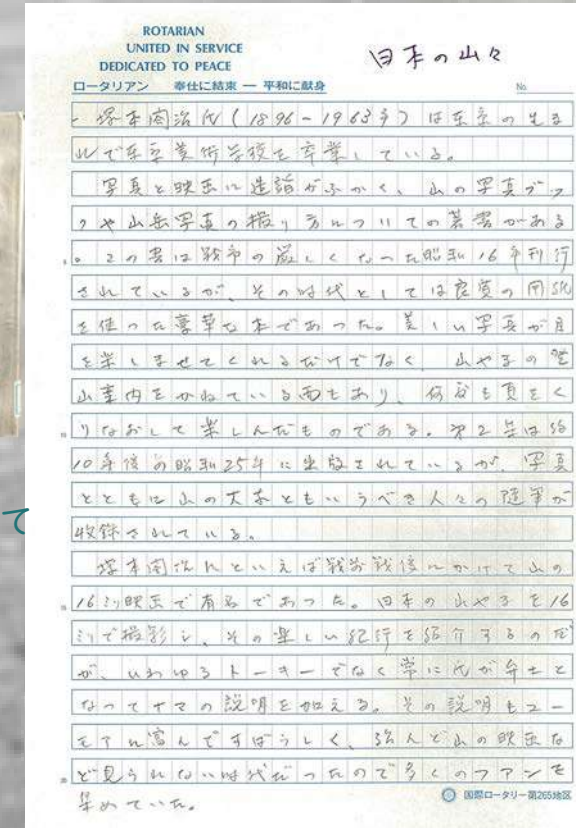 ROTARIAN
UNITED IN SERVICE
DEDICATED TO PEACE
ロータリアン 奉仕に結束 — 平和に献身
日本の山々
No.
塚本閤治氏(1896-1963年)は東京の生ま
れで東京美術学校を卒業している。
写真と映画に造詣がふかく、山の写真ブッ
クや山岳写真の撮り方についての著書がある
5 。この書は戦争の厳しくなった昭和16年刊行
されているが、その時代としては良質の用紙
を使った豪華な本であった。美しい写真が目
を楽しませてくれるだけでなく、山やまの登
山案内をかねている面もあり、何度も頁をく
10 りなおして楽しんだものである。第2集は約
10年後の昭和25年に出版されているが、写真
とともに山の大家ともいうべき人々の随筆が
収録されている。
塚本閤治氏といえば戦前戦後にかけて山の
15 16ミリ映画で有名であった。日本の山やまを16
ミリで撮影し、その楽しい紀行を紹介するのだ
が、いわゆるトーキーでなく常に氏が弁士と
なってナマの説明を加える。その説明もユー
モアに富んですばらしく、殆んど山の映画な
20 ど見られない時代だったので多くのファンを
集めていた。
国際ロータリー第265地区
て